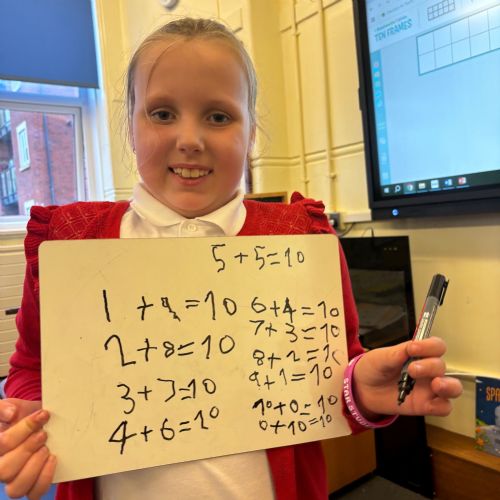 TEN FRAMES
5+5=10
1+9=10
2+8=10
3+7=10
4+6=10
6+4=10
7+3=10
8+2=10
9+1=10
10+0=10
0+10=10
STAR
SPA